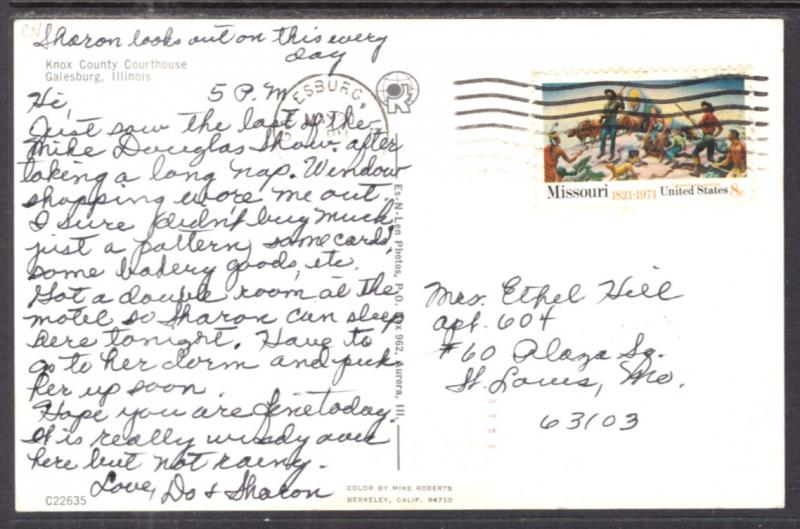 Sharon looks out on this every
day
Knox County Courthouse
Galesburg, Illinois
Hi, 5 P.M.
Just saw the last of the
Mike Douglas Show. after
taking a long nap. Window
shopping wore me out.
I sure didn't buy much,
just a pattern, some cards,
some bakery goods, etc.
Got a double room at the
motel so Sharon can sleep
here tonight. Have to
go to her dorm and pick
her up soon.
Hope you are fine today.
It is really windy over
here but not rainy.
Love, Do & Sharon
C22635
ESBURG,
MAY
Es-N-Len Photos, P.O. Box 962, Aurora, Ill.
COLOR BY MIKE ROBERTS
BERKELEY, CALIF. 94710
Missouri 1821-1971 United States 8c
Mrs. Ethel Hill
apt. 604
#60 Plaza Sq.
St. Louis, Mo.
63103